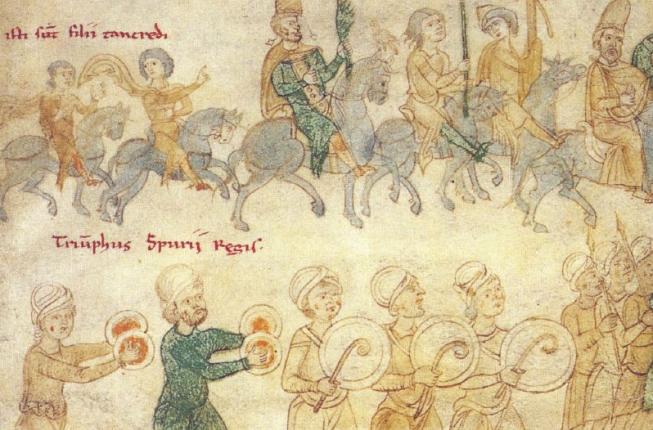 isti sūt filii tancredi
Triūphus Spurij Regis.